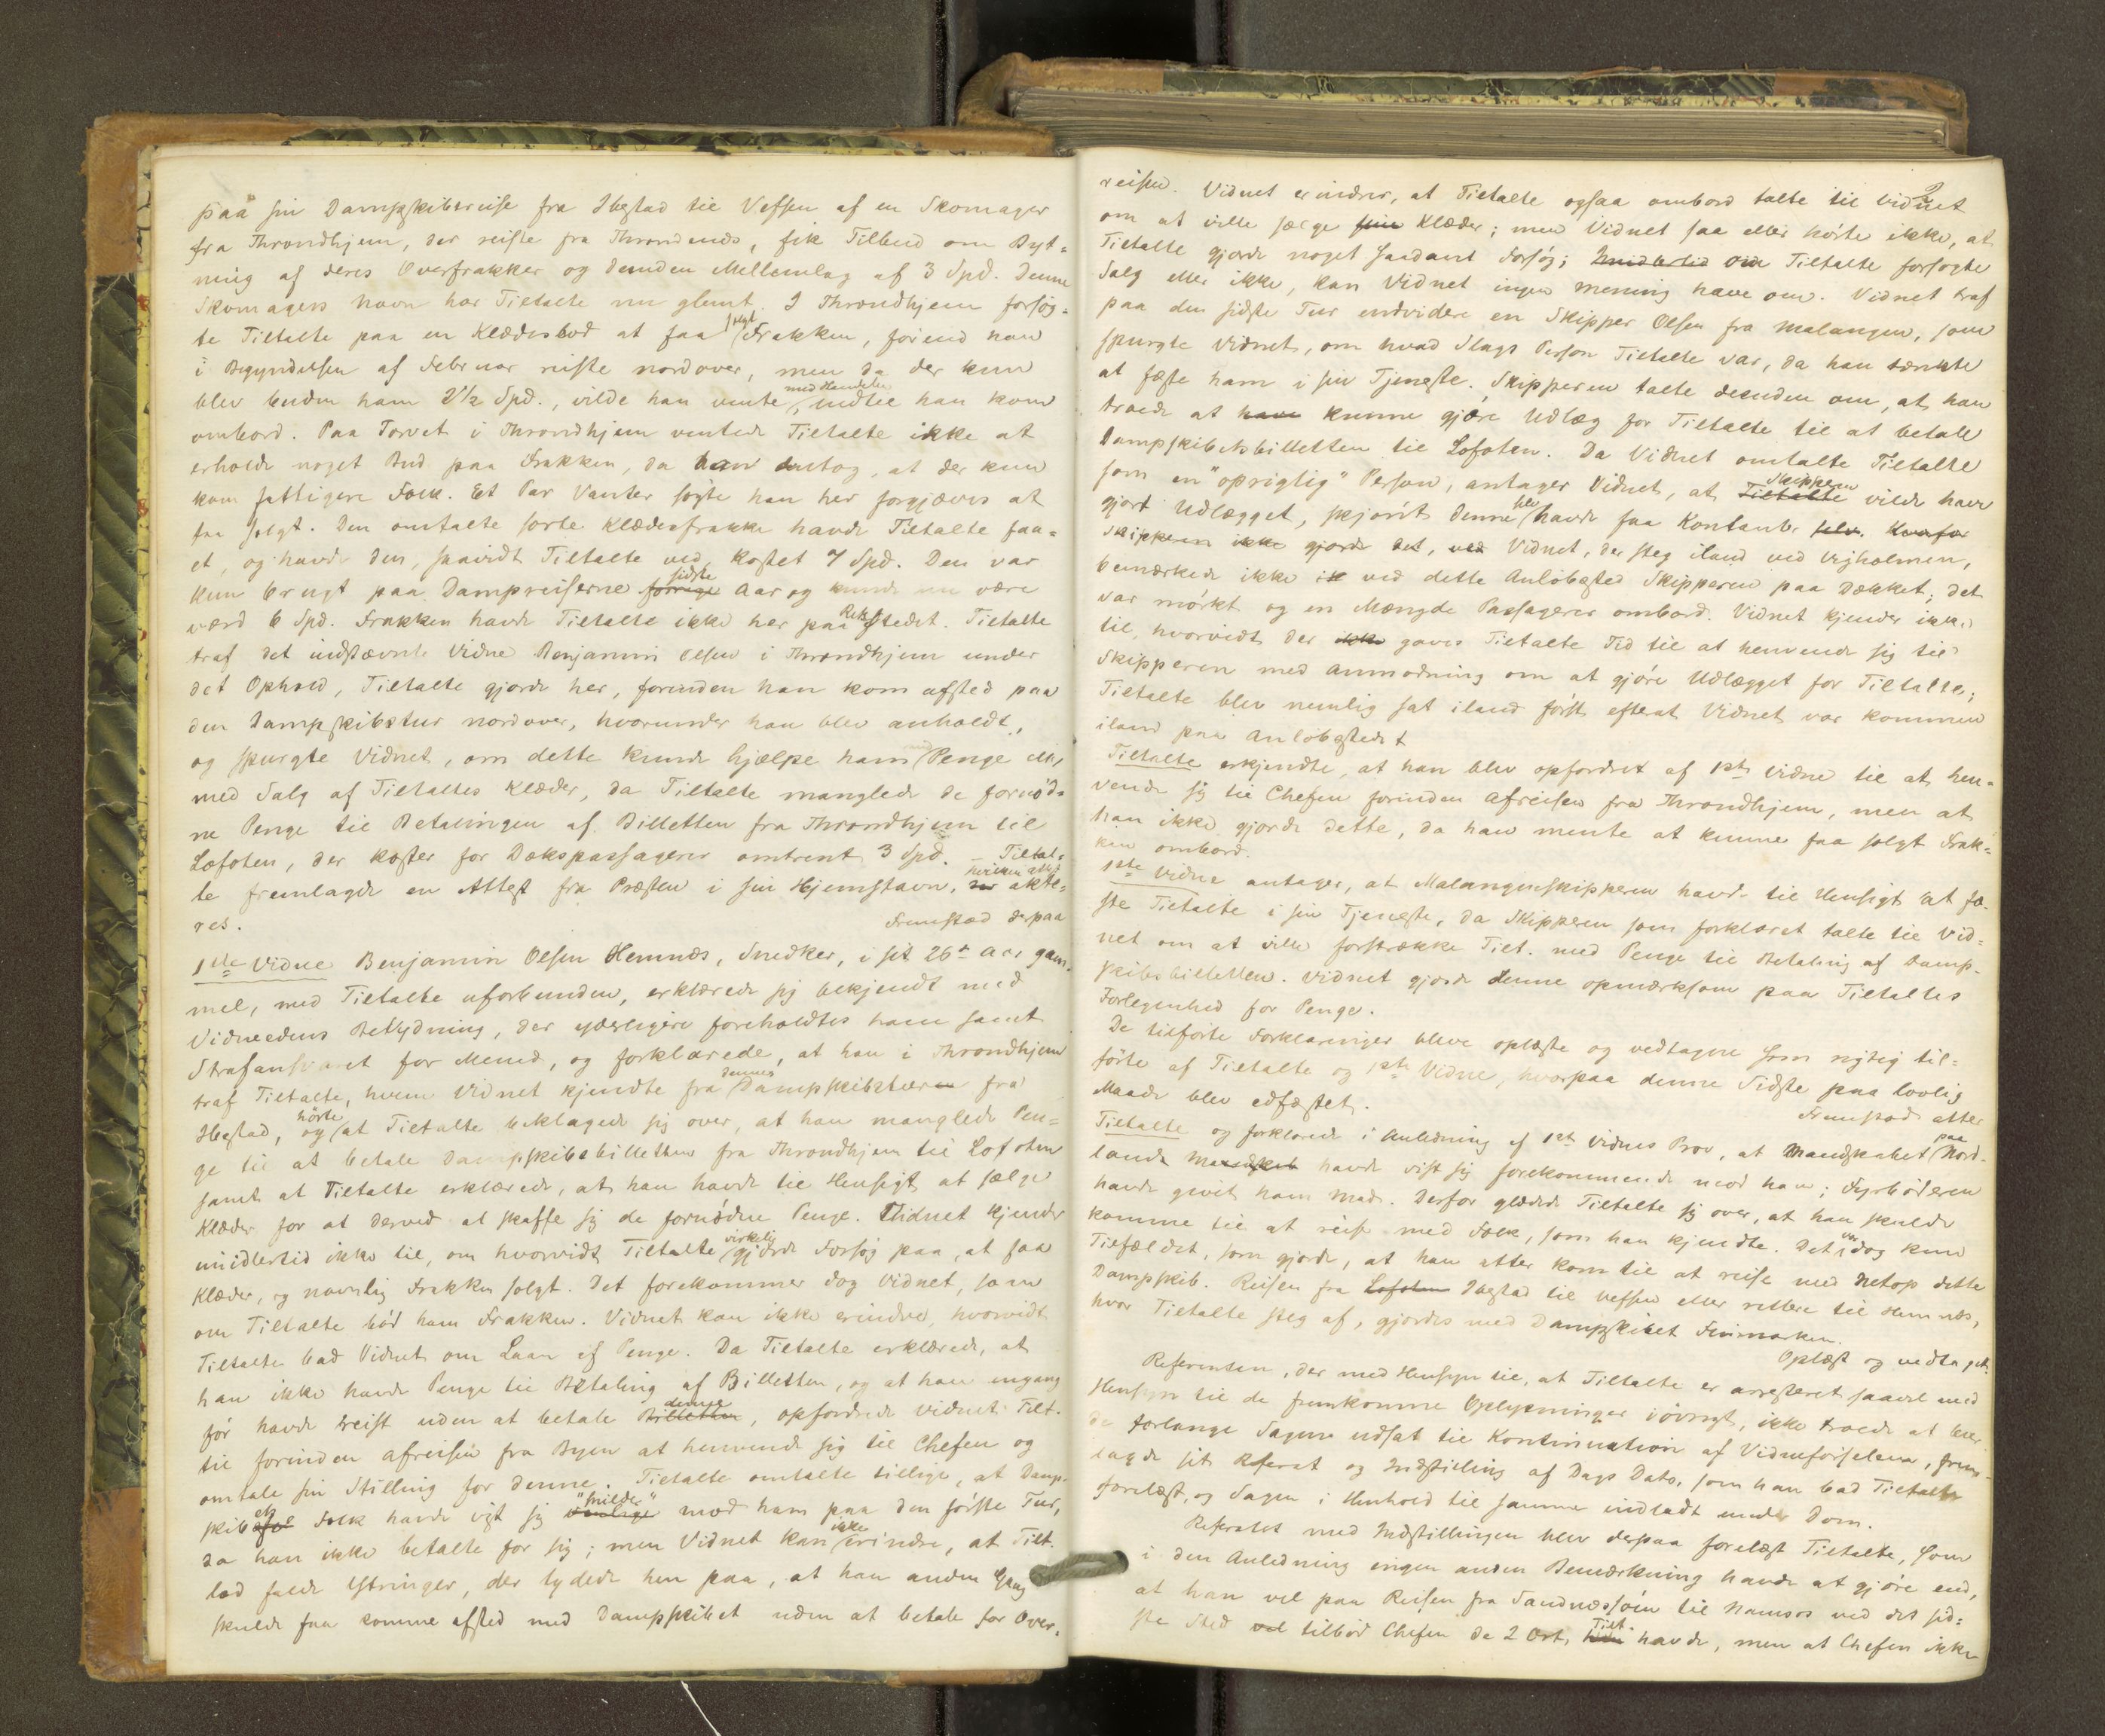 paa sin Dampskibsreise fra Ibestad til Vefsen af en Skomager
fra Throndhjem, der reiste fra Throndenæs, fik Tilbud om Byt-
ning af deres Overfrakker og desuden Mellemlag af 3 Spd. Denne
Skomagers Navn har Tiltalte nu glemt. I Throndhjem forsøg-
te Tiltalte paa en Klædesbod at faa solgt Frakken, førend han
i Begyndelsen af Februar reiste nordover, men da der kun
blev buden ham 2 1/2 Spd., vilde han vente med Handelen, indtil han kom
ombord. Paa Torvet i Throndhjem ventede Tiltalte ikke at
erholde noget Bud paa Frakken, da han antog, at der kun
kom fattigere Folk. Et Par Vanter søgte han her forgjæves at
faa solgt. Den omtalte sorte Klædesfrakke havde Tiltalte faa-
et, og havde den, saavidt Tiltalte ved kostet 7 Spd. Den var
kun brugt paa Dampreiserne forrige sidste Aar og kunde nu være
værd 6 Spd. Frakken havde Tiltalte ikke her paa Retsstedet. Tiltalte
traf det indstævnte Vidne Benjamin Olsen i Throndhjem under
det Ophold, Tiltalte gjorde her, forinden han kom afsted paa
den Dampskibstur nordover, hvorunder han blev anholdt,
og spurgte Vidnet, om dette kunde hjælpe ham med Penge ell.
med Salg af Tiltaltes Klæder, da Tiltalte manglede de fornød-
ne Penge til Betalingen af Billetten fra Throndhjem til
Lofoten, der koster for Dækspassagerer omtrent 3 Spd. – Tiltal-
te fremlagde en Attest fra Præsten i sin Hjemstavn, der hvilken att. akte-
res.
Fremstod derpaa
1ste Vidne Benjamin Olsen Hemnæs, Snedker, i sit 26de Aar gam-
mel, med Tiltalte uforbunden, erklærede sig bekjendt med
Vidneedens Betydning, der yderligere foreholdtes ham samt
Strafansvaret for Mened, og forklarede, at han i Throndhjem
traf Tiltalte, hvem Vidnet kjendte fra dennes Dampskibsturen fra
Ibestad, og hørte at Tiltalte beklagede sig over, at han manglede Pen-
ge til at betale Dampskibsbilletten fra Throndhjem til Lofoten
samt at Tiltalte erklærede, at han havde til Hensigt at sælge
Klæder for at derved at skaffe sig de fornødne Penge. Vidnet kjender
imidlertid ikke til, om hvorvidt Tiltalte virkelig gjorde Forsøg paa, at faa
Klæder, og navnlig Frakken solgt. Det forekommer dog Vidnet, som
om Tiltalte bød ham Frakken. Vidnet kan ikke erindre, hvorvidt
Tiltalte bad Vidnet om Laan af Penge. Da Tiltalte erklærede, at
han ikke havde Penge til Betaling af Billetten, og at han engang
før havde reist uden at betale Billetten denne, opfordrede Vidnet Tilt.
til forinden Afreisen fra Byen at henvende sig til Chefen og
omtale sin Stilling for denne. Tiltalte omtalte tillige, at Damp-
skibets Folk havde vist sig "milde" mod ham paa den første Tur,
da han ikke betalte for sig; men Vidnet kan ikke erindre, at Tilt.
lod falde Ytringer, der lydede hen paa, at han anden Gang
skulde faa komme afsted med Dampskibet uden at betale for Over-
2
reisen. Vidnet erindrer, at Tiltalte ogsaa ombord talte til Vidnet
om at ville sælge sine Klæder; men Vidnet saa eller hørte ikke, at
Tiltalte gjorde noget saadant Forsøg; Imidlertid om Tiltalte forsøgte
Salg eller ikke, kan Vidnet ingen Mening have om. Vidnet traf
paa den sidste Tur endvidere en Skipper Olsen fra Malangen, som
spurgte Vidnet, om hvad Slags Person Tiltalte var, da han tænkte
at fæste ham i sin Tjeneste. Skipperen talte desuden om, at han
troede at have kunne gjøre Udlæg for Tiltalte til at betale
Dampskibsbilletten til Lofoten. Da Vidnet omtalte Tiltalte
som en "oprigtig" Person, antager Vidnet, at Tiltalte Skipperen vilde have
gjort Udlægget, skjønt denne selv havde faa Kontanter selv. Hvorfor
Skipperen ikke gjorde det, ved Vidnet, der steg iland ved Vigholmen,
bemærkede ikke ik ved dette Anløbssted Skipperen paa Dækket; det
var mørkt og en Mængde Passagerer ombord. Vidnet kjender ikke
til, hvorvidt der ikke gaves Tiltalte Tid til at henvende sig til
Skipperen med Anmodning om at gjøre Udlægget for Tiltalte;
Tiltalte blev nemlig sat iland først efterat Vidnet var kommen
iland paa Anløbsstedet
Tiltalte erkjendte, at han blev opfordret af 1ste Vidne til at hen-
vende sig til Chefen forinden Afreisen fra Throndhjem, men at
han ikke gjorde dette, da han mente at kunne faa solgt Frak-
ken ombord.
1ste Vidne antager, at Malangenskipperen havde til Hensigt at fæ-
ste Tiltalte i sin Tjeneste, da Skipperen som forklaret talte til Vid-
net om at ville forstrække Tilt. med Penge til Betaling af Damp-
skibsbilletten. Vidnet gjorde denne opmærksom paa Tiltaltes
Forlegenhed for Penge.
De tilførte Forklaringer bleve oplæste og vedtagne som rigtig til-
førte af Tiltalte og 1ste Vidne, hvorpaa denne Sidste paa lovlig
Maade blev edfæstet.
Fremstod atter
Tiltalte og forklarede i Anledning af 1ste Vidnes Prov, at Mandskabet paa Nord-
lands Mandskab havde vist sig forekommende mod ham; Fyrbøderen
havde givet ham Mad. Derfor glædede Tiltalte sig over, at han skulde
komme til at reise med Folk, som han kjendte. Det var dog kun
Tilfældet, som gjorde, at han atter kom til at reise med netop dette
Dampskib. Reisen fra Lofoten Ibestad til Vefsen eller rettere til Hemnæs,
hvor Tiltalte steg af, gjordes med Dampskibet Finmarken.
Oplæst og vedtaget.
Referenten, der med Hensyn til, at Tiltalte er arresteret saavel med
Hensyn til de fremkomne Oplysninger iøvrigt, ikke troede at burde
forlange Sagen udsat til Kontinuation af Vidneførselen, frem-
lagde sit Referat og Indstilling af Dags Dato, som han bad Tiltalte
forelæst, og Sagen i Henhold til samme indladt under Dom.
Referatet med Indstillingen blev derpaa forelæst Tiltalte, som
i den Anledning ingen anden Bemærkning havde at gjøre end,
at han vel paa Reisen fra Sandnæssøen til Namsos ved det sid-
ste Sted vel tilbød Chefen de 2 Ort, han Tilt. havde, men at Chefen ikke